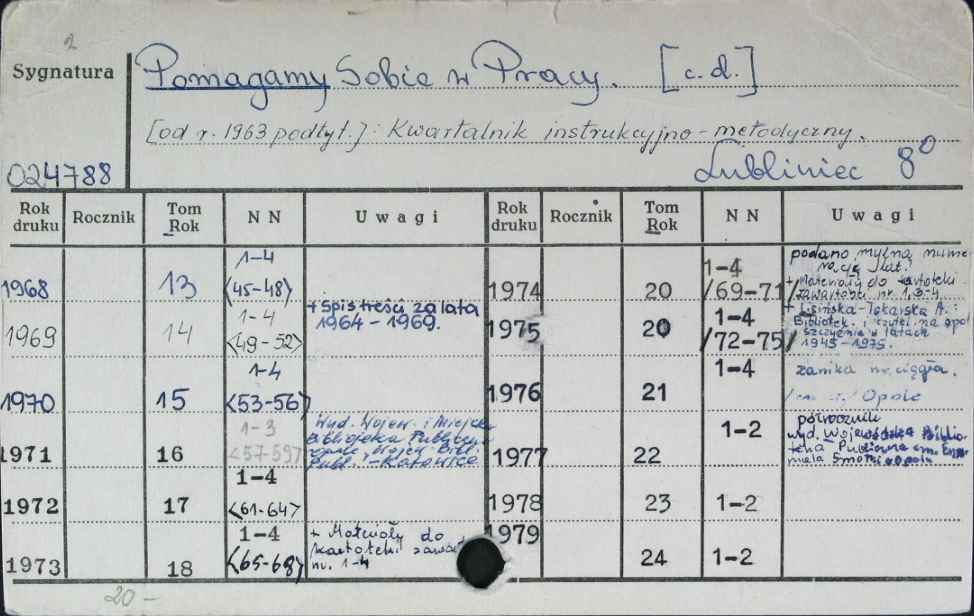 2
Sygnatura
Pomagamy Sobie w Pracy. [c.d.]
[od r. 1963 podtyt.]: Kwartalnik instrukcyjno-metodyczny.
Lubliniec 8⁰
024788
Rok druku Rocznik Tom Rok NN Uwagi Rok druku Rocznik Tom Rok NN Uwagi
1968 13 1-4 <45-48>
1969 14 1-4 <49-52> + Spis treści za lata 1964-1969.
1970 15 1-4 <53-56>
1971 16 1-3 <57-59> Wyd. Wojew. i Miejska Biblioteka Publiczna Opole, Wojew. Bibl. Publ. - Katowice
1972 17 1-4 <61-64>
1973 18 1-4 <65-68> + Materiały do kartoteki zawart. nr. 1-4
1974 20 1-4 /69-71/ podano mylną numerację lat. + Materiały do kartoteki zawartości nr. 1,3-4
1975 20 1-4 /72-75/ + A.: Bibliotek. i czytel. na opolszczyźnie w latach 1945-1975.
1976 21 1-4 zanika nr. ciągła. Opole
1977 22 1-2 półrocznik wyd. Wojewódzka Biblioteka Publiczna im. Smolki Opole
1978 23 1-2
1979 24 1-2
20 -